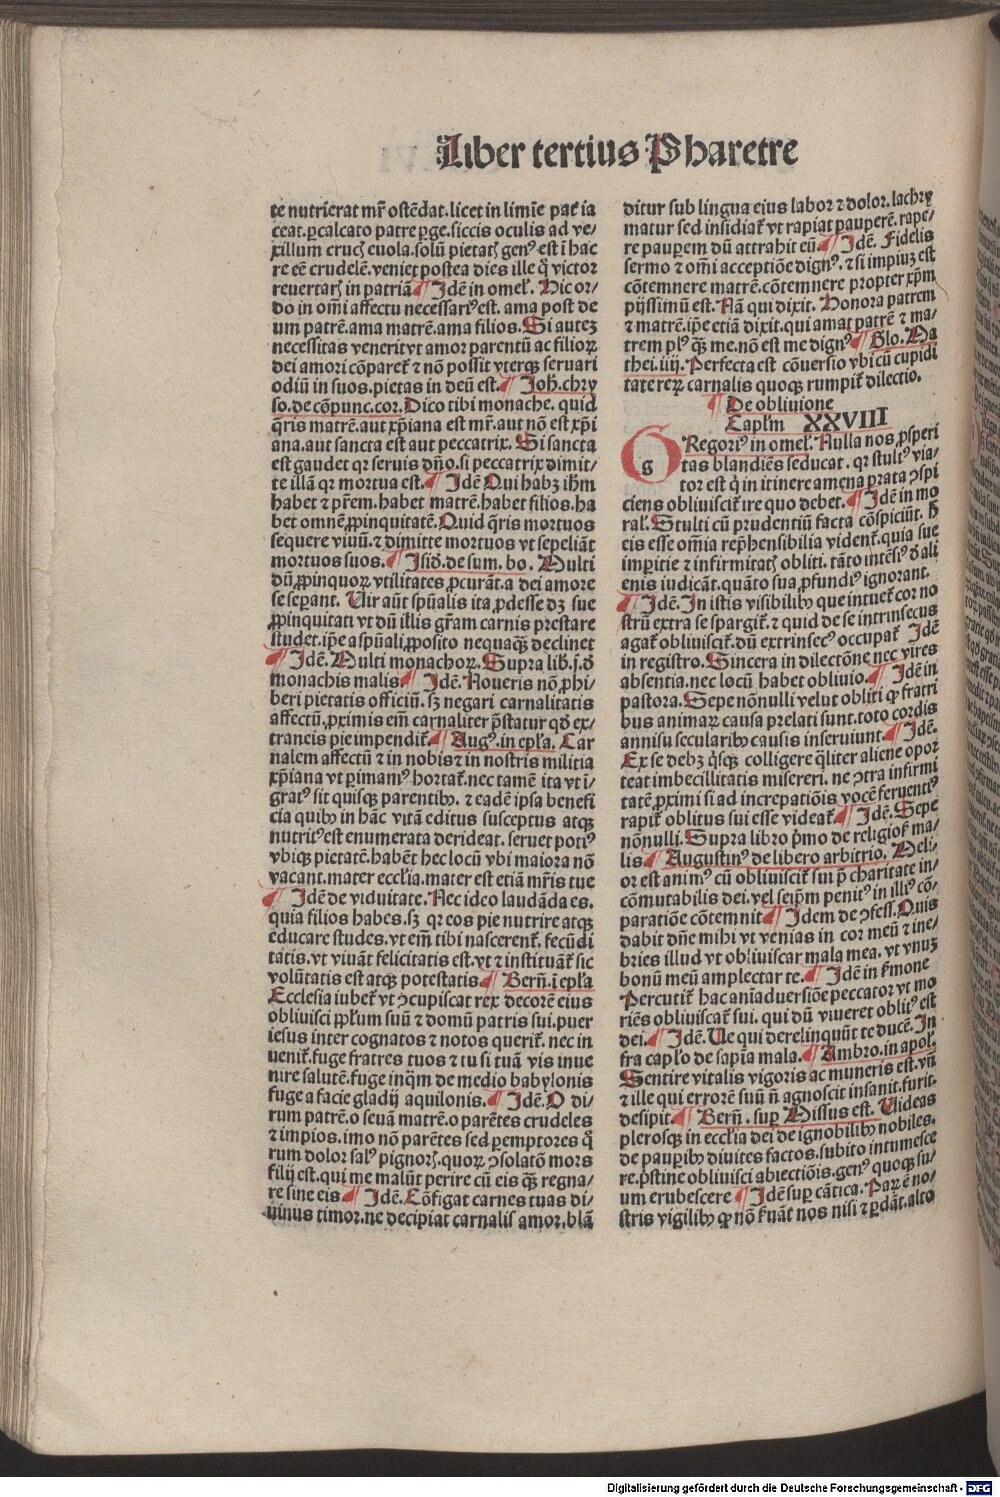 Liber tertius Pharetre
te nutrierat mr̄ ostēdat. licet in limīe pat̄ ia
ceat. ꝑcalcato patre ꝑge. siccis oculis ad ve⸗
xillum crucꝭ euola. solū pietatꝭ genꝰ est ī hac
re eē crudelē. veniet postea dies ille q̄ victor
reuertarꝭ in patriā ¶ Idē in omel̓. Hic or⸗
do in om̄i affectu necessariꝰ est. ama post de
um patrē. ama matrē. ama filios. Si auteꝫ
necessitas venerit vt amor parentū ac filioꝝ
dei amori cōparet᷑ ⁊ nō possit vterqꝫ seruari
odiū in suos. pietas in deū est. ¶ Joh̄. chry
so. de cōpunc. cor. Dico tibi monache. quid
q̄ris matrē. aut xp̄iana est mr̄. aut nō est xp̄i
ana. aut sancta est aut peccatrix. Si sancta
est gaudet qꝛ seruis dn̄o. si peccatrix dimit⸗
te illā qꝛ mortua est. ¶ Idē Qui habꝫ ih̄m
habet ⁊ pr̄em. habet matrē. habet filios. ha
bet omnē ꝓpinquitatē. Quid q̄ris mortuos
sequere viuū. ⁊ dimitte mortuos vt sepeliāt
mortuos suos. ¶ Isid̄. de sum. bo. Multi
dū ꝓpinquoꝝ vtilitates ꝓcurāt. a dei amore
se seꝑant. Uir aūt spūalis ita ꝓdesse dꝫ sue
ꝓpinquitati vt dū illis gr̄am carnis prestare
studet. ip̄e a spūali ꝓposito nequaqꝫ declinet
¶ Idē. Multi monachoꝝ. Supra lib̄. j. d̄
monachis malis ¶ Idē. Noueris nō ꝓhi⸗
beri pietatis officiū. sꝫ negari carnalitatis
affectū. ꝓximis em̄ carnaliter p̄statur qd̄ ex⸗
traneis pie impendit᷑. ¶ Augꝰ. in epl̄a. Car
nalem affectū ⁊ in nobis ⁊ in nostris militia
xp̄iana vt ꝑimamꝰ hortat᷑. nec tamē ita vt ī⸗
gratꝰ sit quisqꝫ parentibꝫ. ⁊ eadē ipsa benefi
cia quibꝫ in hāc vitā editus susceptus atqꝫ
nutritꝰ est enumerata derideat. seruet potiꝰ
vbiqꝫ pietatē. habēt hec locū vbi maiora nō
vacant. mater eccl̄ia. mater est etiā mr̄is tue
¶ Idē de viduitate. Nec ideo laudāda es.
quia filios habes. sꝫ qꝛ eos pie nutrire atqꝫ
educare studes. vt em̄ tibi nascerent᷑. fecūdi
tatis. vt viuāt felicitatis est. vt ⁊ instituāt᷑ sic
volūtatis est atqꝫ potestatis ¶ Bern̄. ī epl̄a
Ecclesia iubet᷑ vt ꝯcupiscat rex decorē eius
obliuisci ppl̄um suū ⁊ domū patris sui. puer
iesus inter cognatos ⁊ notos querit᷑. nec in
uenit᷑. fuge fratres tuos ⁊ tu si tuā vis inue
nire salutē. fuge inq̄m de medio babylonis
fuge a facie gladij aquilonis. ¶ Idē. O di⸗
rum patrē. o seuā matrē. o parētes crudeles
⁊ impios. imo nō parētes sed ꝑemptores q̄
rum dolor salꝰ pignorꝭ. quoꝝ ꝯsolatō mors
filij est. qui me malūt perire cū eis q̄ꝫ regna⸗
re sine eis ¶ Idē. Cōfigat carnes tuas di⸗
uinus timor. ne decipiat carnalis amor. blā
ditur sub lingua eius labor ⁊ dolor. lachry
matur sed insidiat᷑ vt rapiat pauperē. rape⸗
re pauꝑem dū attrahit eū ¶ Idē. Fidelis
sermo ⁊ om̄i acceptiōe dignꝰ. ⁊ si impiuꝫ est
cōtemnere matrē. cōtemnere propter xp̄m
pijssimū est. Nā qui dixit. Honora patrem
⁊ matrē. ip̄e etiā dixit. qui amat patrē ⁊ ma⸗
trem plꝰ q̄ꝫ me. nō est me dignꝰ ¶ Glo. Ma
thei. iiij. Perfecta est cōuersio vbi cū cupidi
tate reꝝ carnalis quoqꝫ rumpit᷑ dilectio.
¶ De obliuione
Capl̄m XXVIII
GRegoriꝰ in omel̓. Nulla nos ꝓsperi
tas blandiēs seducat. qꝛ stultꝰ via⸗
tor est q̄ in itinere amena prata ꝯspi
ciens obliuiscit᷑ ire quo debet. ¶ Idē in mo
ral̓. Stulti cū prudentiū facta cōspiciūt. h̄
eis esse om̄ia repħensibilia vident᷑. quia sue
imꝑitie ⁊ infirmitatꝭ obliti. tāto intēsiꝰ d̄ ali
enis iudicāt. quāto sua ꝓfundiꝰ ignorant.
¶ Idē. In istis visibilibꝫ que intuet᷑ cor no
strū extra se spargit᷑. ⁊ quid de se intrinsecus
agat᷑ obliuiscit᷑. dū extrinsecꝰ occupat᷑ Idē
in registro. Sincera in dilectōne nec vires
absentia. nec locū habet obliuio. ¶ Idē in
pastora. Sepe nōnulli velut obliti ꝙ fratri
bus animaꝝ causa prelati sunt. toto cordis
annisu secularibꝫ causis inseruiunt ¶ Idē.
Ex se debꝫ q̄sqꝫ colligere q̄liter aliene opor
teat imbecillitatis misereri. ne ꝯtra infirmi
tatē ꝓximi si ad increpatiōis vocē feruentiꝰ
rapit᷑ oblitus sui esse videat᷑ ¶ Idē. Sepe
nōnulli. Supra libro p̄mo de religiosꝭ ma⸗
lis ¶ Augustinꝰ de libero arbitrio. Meli⸗
or est animꝰ cū obliuiscit᷑ sui p̄ charitate in⸗
cōmutabilis dei. vel seip̄m penitꝰ in illiꝰ cō⸗
paratiōe cōtemnit ¶ Idem de ꝯfess. Quis
dabit dn̄e mihi vt venias in cor meū ⁊ ine⸗
bries illud vt obliuiscar mala mea. vt vnuꝫ
bonū meū amplectar te. ¶ Idē in s̄mone
Percutit᷑ hac aniaduersiōe peccator vt mo
riēs obliuiscat᷑ sui. qui dū viueret oblitꝰ est
dei. ¶ Idē. Ue qui derelinquūt te ducē. In
fra capl̄o de sapīa mala. ¶ Ambro. in apol̓.
Sentire vitalis vigoris ac muneris est. vn̄
⁊ ille qui errorē suū n̄ agnoscit insanit. furit.
desipit. ¶ Bern̄. suꝑ Missus est. Uideas
plerosqꝫ in eccl̄ia dei de ignobilibꝫ nobiles.
de pauꝑibꝫ diuites factos. subito intumesce
re. p̄stine obliuisci abiectiōis. genꝰ quoqꝫ su⸗
um erubescere ¶ Idē suꝑ cātica. Par ē no⸗
stris vigilibꝫ ꝙ nō s̄uāt nos nisi ⁊ ꝑdāt. alto
Digitalisierung gefördert durch die Deutsche Forschungsgemeinschaft - DFG